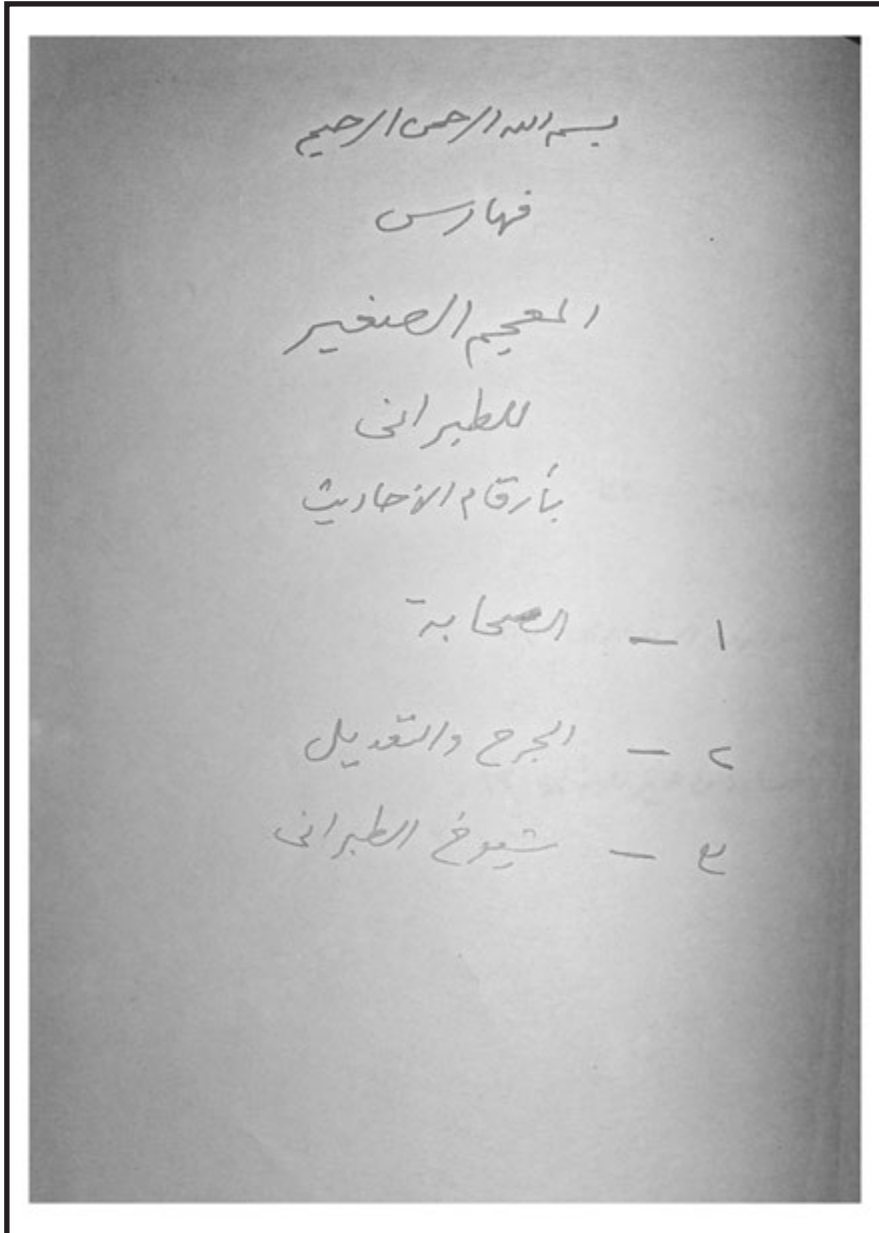 بسم الله الرحمن الرحيم
فهارس
المعجم الصغير
للطبرانى
بأرقام الأحاديث
١ - الصحابة
٢ - الجرح والتعديل
٣ - شيوخ الطبرانى